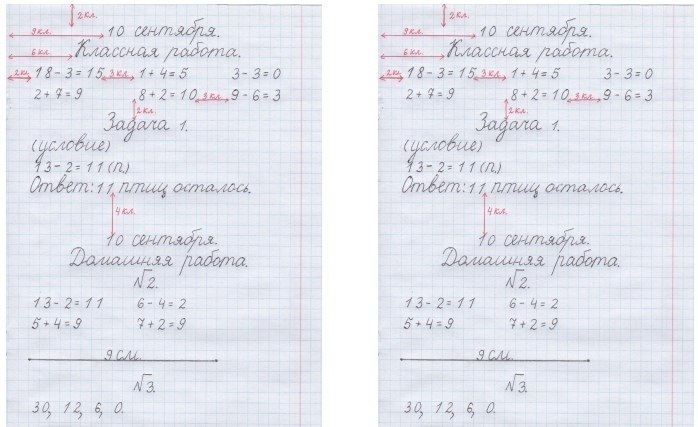 2 кл.
9 кл.
10 сентября.
6 кл.
Классная работа.
2 кл. 18-3=15 3 кл. 1+4=5 3-3=0
2+7=9 8+2=10 3 кл. 9-6=3
2 кл.
Задача 1.
(условие)
13-2=11(п.)
Ответ: 11 птиц осталось.
4 кл.
10 сентября.
Домашняя работа.
№2.
13-2=11 6-4=2
5+4=9 7+2=9
9 см.
№3.
30, 12, 6, 0.
2 кл.
9 кл.
10 сентября.
6 кл.
Классная работа.
2 кл. 18-3=15 3 кл. 1+4=5 3-3=0
2+7=9 8+2=10 3 кл. 9-6=3
2 кл.
Задача 1.
(условие)
13-2=11(п.)
Ответ: 11 птиц осталось.
4 кл.
10 сентября.
Домашняя работа.
№2.
13-2=11 6-4=2
5+4=9 7+2=9
9 см.
№3.
30, 12, 6, 0.